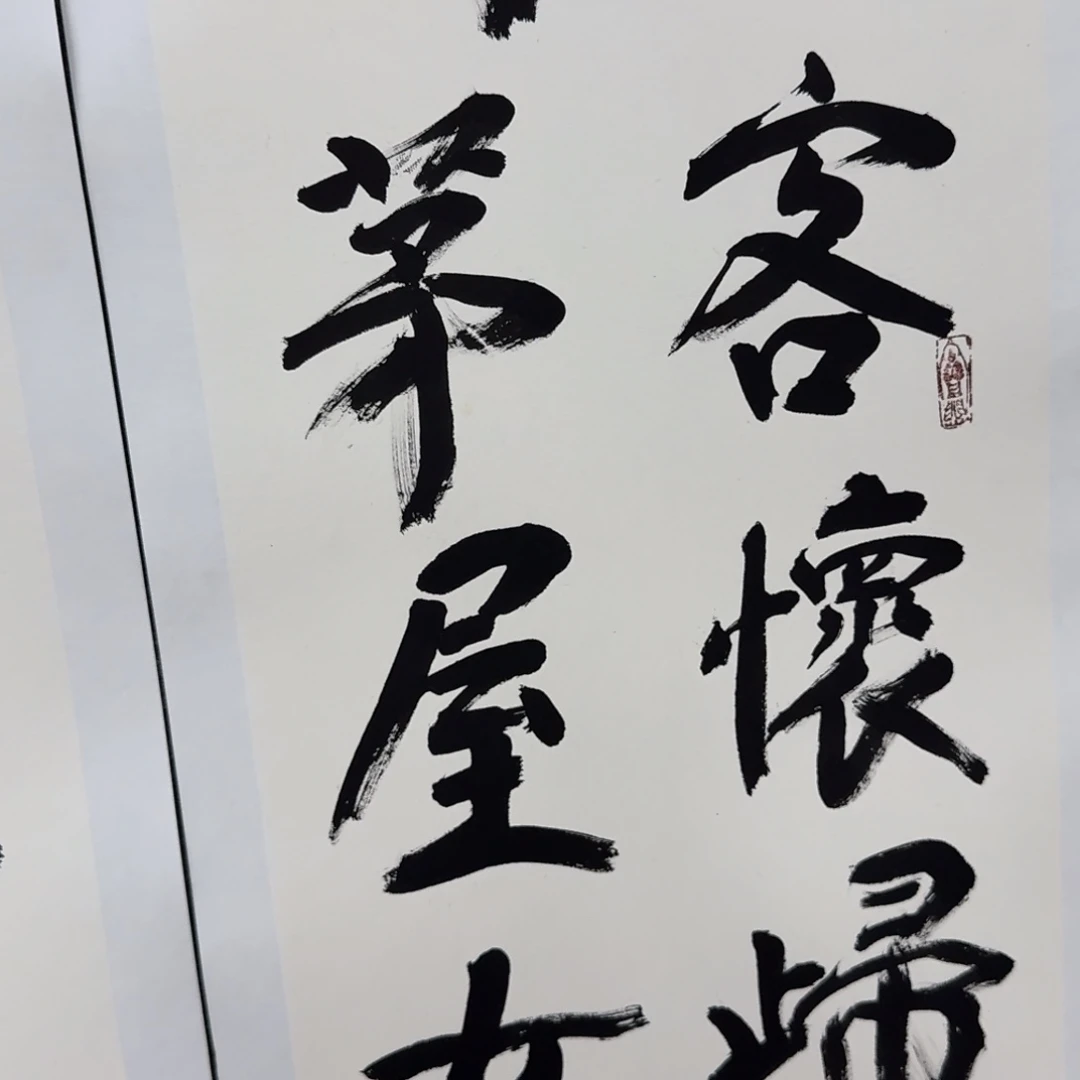 客懷歸
茅屋